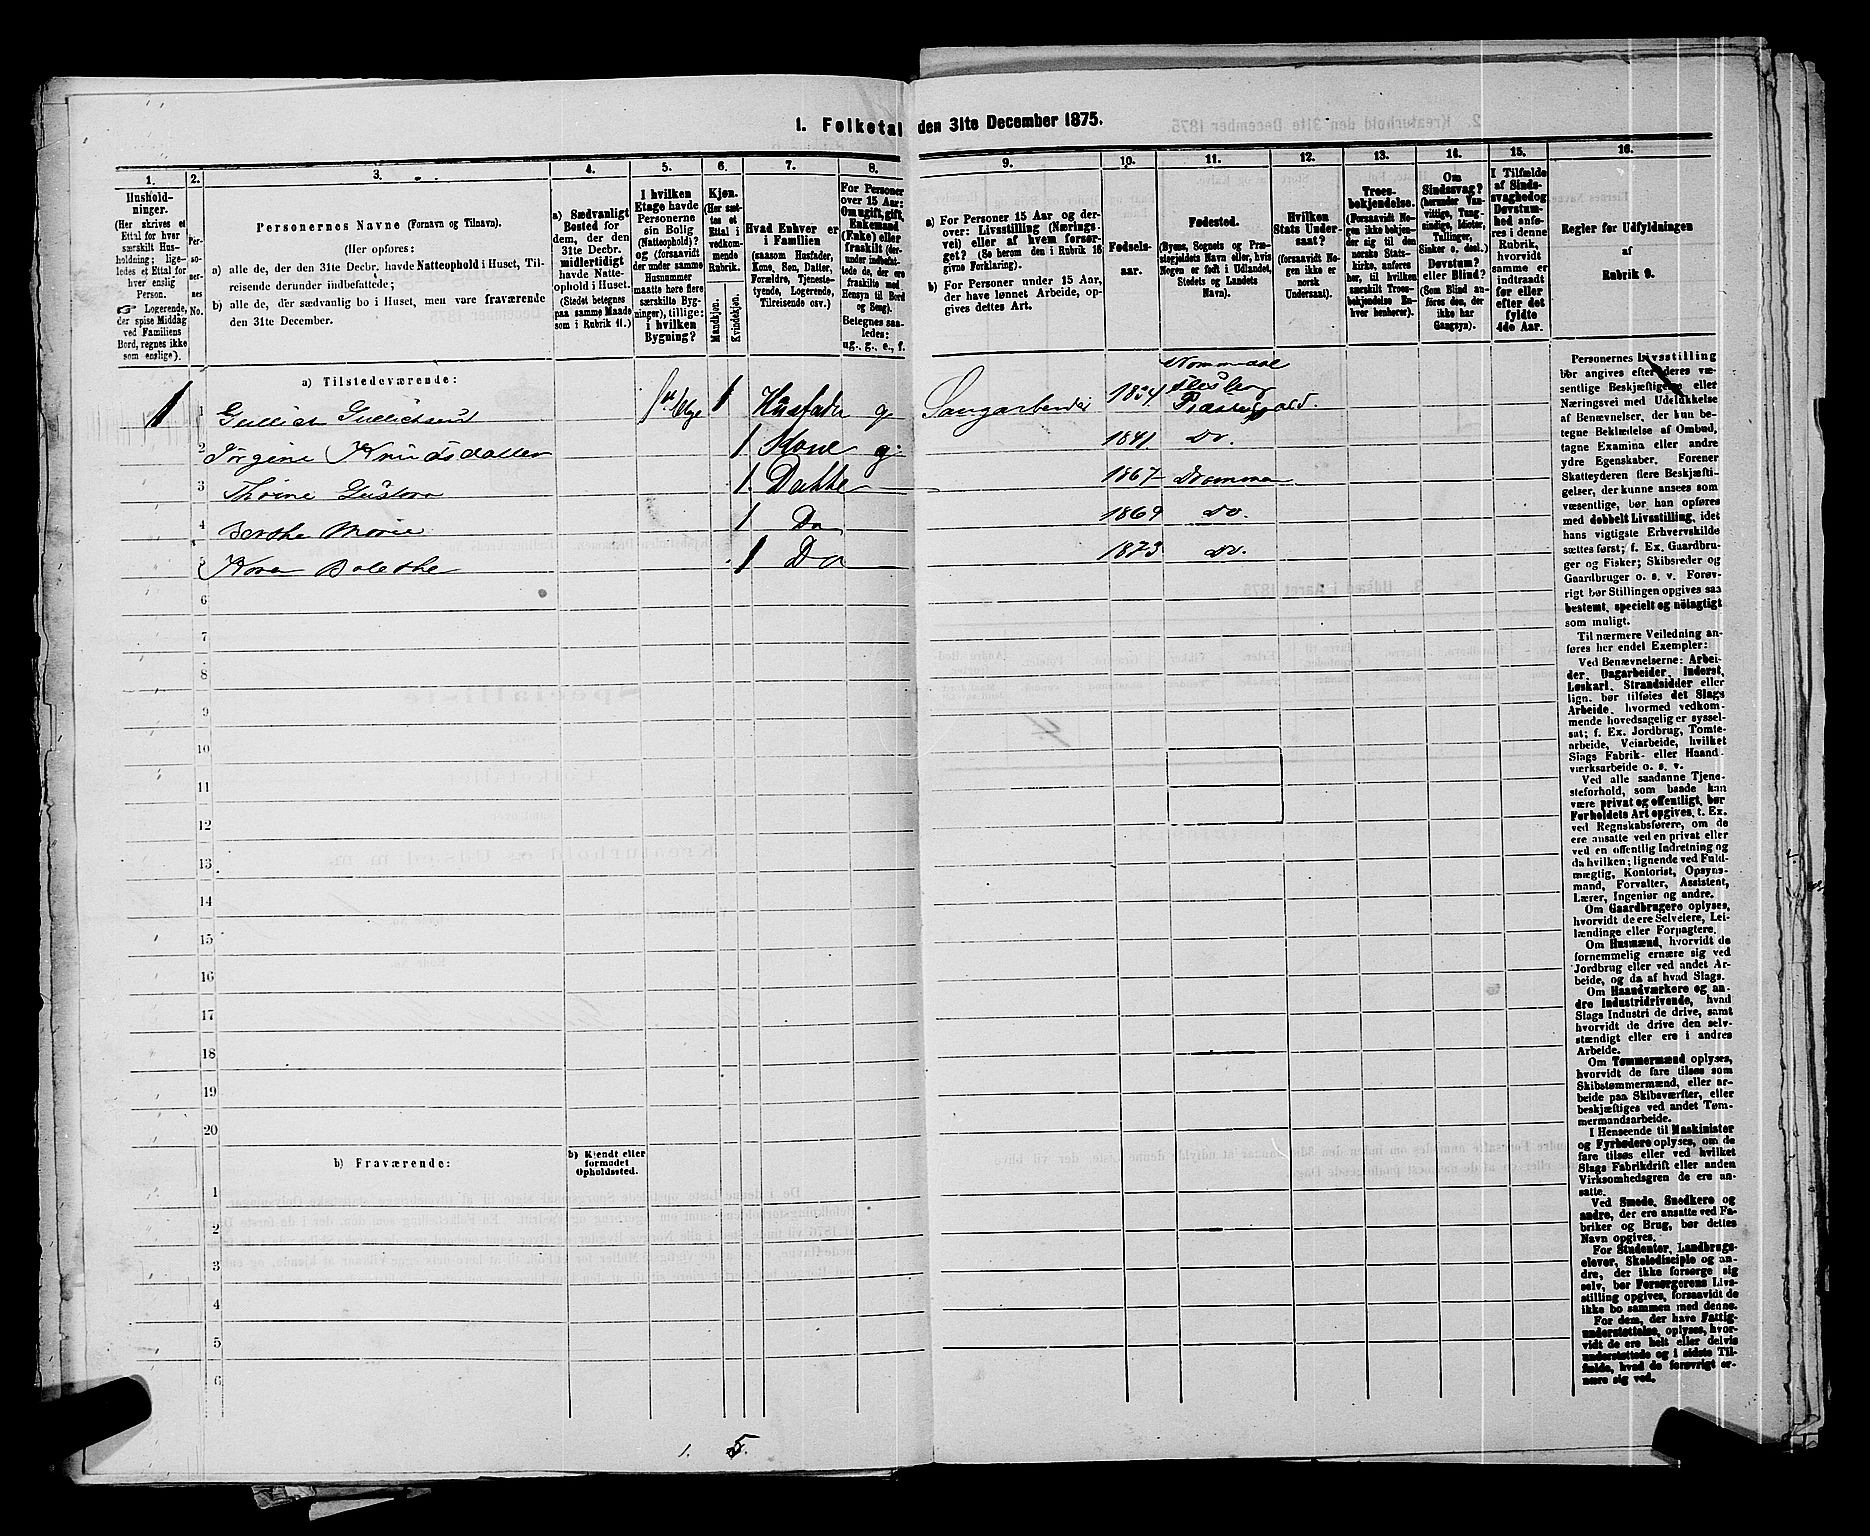 1. Folketal den 31te December 1875.
1.
Hushold-
ninger.
(Her skrives et
Ettal for hver
særskilt Hus-
holding; lige-
ledes et Ettal for
hver enslig
Person.
☞ Logerende,
der spise Middag
ved Familiens
Bord, regnes ikke
som enslige).
2.
Per-
so-
ner-
nes
No.
3.
Personernes Navne (Fornavn og Tilnavn).
(Her opføres:
a) alle de, der den 31te Decbr. havde Natteophold i Huset, Til-
reisende derunder indbefattede;
b) alle de, der sædvanlig bo i Huset, men vare fraværende
den 31te December.
4.
a) Sædvanligt
Bosted for
dem, der den
31te Decbr.
midlertidigt
havde Natte-
ophold i Huset.
(Stedet betegnes
paa samme Maade
som i Rubrik 11.)
5.
I hvilken
Etage havde
Personerne
sin Bolig
(Natteophold)?
og (forsaavidt
der under samme
Husnummer
maatte høre flere
særskilte Byg-
ninger), tillige:
i hvilken
Bygning?
6.
Kjøn.
(Her sæt-
tes et
Ettal i
vedkom-
mende
Rubrik.
Mandkjøn.
Kvindekjøn.
7.
Hvad Enhver er
i Familien
(saasom Husfader,
Kone, Søn, Datter,
Forældre, Tjeneste-
tyende, Logerende,
Tilreisende osv.)
8.
For Personer
over 15 Aar:
Om ugift, gift,
Enkemand
(Enke) eller
fraskilt (der-
under indbefat-
tede de, der ere
fraskilte med
Hensyn til Bord
og Seng).
Betegnes saa-
ledes:
ug., g., e., f.
9.
a) For Personer 15 Aar og der-
over: Livsstilling (Nærings-
vei) eller af hvem forsør-
get? (Se herom den i Rubrik 16
givne Forklaring).
b) For Personer under 15 Aar,
der have lønnet Arbeide, op-
gives dettes Art.
10.
Fødsels-
aar.
11.
Fødested.
(Byens, Sognets og Præ-
stegjeldets Navn eller, hvis
Nogen er født i Udlandet,
Stedets og Landets
Navn).
12.
Hvilken
Stats Under-
saat?
(forsaavidt No-
gen ikke er
norsk
Undersaat).
13.
Troes-
bekjendelse.
(Forsaavidt No-
gen ikke bekjen-
der sig til den
norske Stats-
kirke, anføres
her, til hvilken
særskilt Troes-
bekjendelse En-
hver henhører).
14.
Om
Sindssvag?
(herunder Van-
vittige, Tung-
sindige, Idioter,
Tullinger,
Sinker o. desl.)
Døvstum?
eller Blind?
(Som Blind an-
føres den, der
ikke har
Gangsyn).
15.
I Tilfælde
af Sinds-
svaghed og
Døvstum-
hed anfø-
res i denne
Rubrik,
hvorvidt
samme er
indtraadt
før eller
efter det
fyldte
4de Aar.
16.
Regler for Udfyldningen
af
Rubrik 9.
a) Tilstedeværende:
1 1 Gullich Gullichsen 1 Husfader g. 1834 Flesberg Præstegjeld.
2 Jørgine Knudsdatter 1 Kone g. 1841 Do.
3 Thoine Gustava 1. Datter 1867 Drammen
4 Berthe Marie 1 Do 1869 Do.
5 Karen Bolethe 1 Do 1873 Do.
6
7
8
9
10
11
12
13
14
15
16
17
18
19
20
b) Fraværende:
b) Kjendt eller
formodet
Opholdssted.
1
2
3
4
5
6
1. 5.
Personernes Livsstilling
bør angives efter deres væ-
sentlige Beskjæftigelse eller
Næringsvei med Udelukkelse
af Benævnelser, der kun be-
tegne Beklædelse af Ombud,
tagne Examina eller andre
ydre Egenskaber. Forener
Skatteyderen flere Beskjæfti-
gelser, der kunne ansees som
væsentlige, bør han opføres
med dobbelt Livsstilling, idet
hans vigtigste Erhvervskilde
sættes først; f. Ex. Gaardbru-
ger og Fisker; Skibsreder og
Gaardbruger o. s. v. Forøv-
rigt bør Stillingen opgives saa
bestemt, specielt og nöiagtigt
som muligt.
Til nærmere Veiledning an-
føres her endel Exempler:
Ved Benævnelserne: Arbei-
der, Dagarbeider, Inderst,
Løskarl, Strandsidder eller
lign. bør tilføies det Slags
Arbeide, hvormed vedkom-
mende hovedsagelig er syssel-
sat; f. Ex. Jordbrug, Tomte-
arbeide, Veiarbeide, hvilket
Slags Fabrik- eller Haand-
værksarbeide o. s. v.
Ved alle saadanne Tjene-
steforhold, som baade kan
være privat og offentligt, bør
Forholdets Art opgives, t. Ex.
ved Regnskabsførere, om de
ere ansatte ved en privat eller
ved en offentlig Indretning og
da hvilken; lignende ved Fuld-
mægtig, Kontorist, Opsyns-
mand, Forvalter, Assistent,
Lærer, Ingeniør og andre.
Om Gaardbrugere oplyses,
hvorvidt de ere Selveiere, Lei-
lændinge eller Forpagtere.
Om Husmænd, hvorvidt de
fornemmelig ernære sig ved
Jordbrug eller ved andet Ar-
beide, og da af hvad Slags.
Om Haandværkere og an-
dre Industridrivende, hvad
Slags Industri de drive, samt
hvorvidt de drive den selv-
stændigt eller ere i andres
Arbeide.
Om Tømmermænd oplyses,
hvorvidt de fare tilsøs som
Skibstømmermænd, eller ar-
beide paa Skibsværfter, eller
beskjæftiges ved andet Tøm-
mermandsarbeide.
I Henseende til Maskinister
og Fyrbødere oplyses, om de
fare tilsøs eller ved hvilket
Slags Fabrikdrift eller anden
Virksomhedsgren de ere an-
satte.
Ved Smede, Snedkere og
andre, der ere ansatte ved Fa-
briker og Brug, bør dettes
Navn opgives.
For Studenter, Landbrugs-
elever, Skoledisciple og an-
dre, der ikke forsørge sig
selv, bør Forsørgerens Livs-
stilling opgives, forsaavidt de
ikke bo sammen med denne.
For dem, der have Fattig-
understøttelse, oplyses, hvor-
vidt de ere helt eller delvis
understøttede og i sidste Til-
fælde, hvad de forøvrigt er-
nære sig ved.